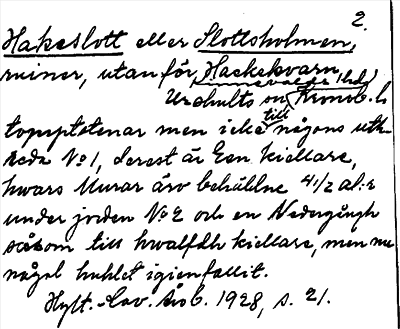 2.
Hakeslott eller Slottsholmen,
ruiner, utanför Hackekvarn
Urshults sn Kronob. l.
men icke till någons
No 1, derest är Een kiellare,
hwars Murar äro behållne 4 1/2 al:r
under jorden No 2 och en Nedergångh
såsom till hwalfdh kiellare, men nu
något huhlet igienfallit.
Hylt.-Cav. Årsb. 1928, s. 21.